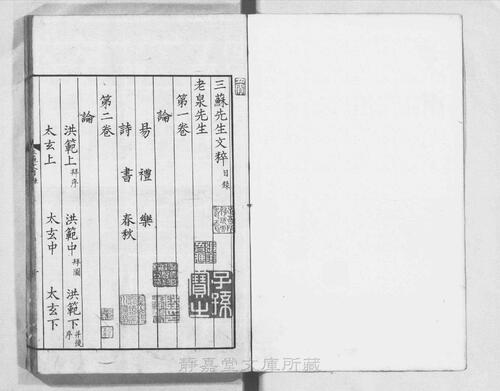 三蘇先生文粹目錄
老泉先生
第一卷
論
易 禮 樂
詩 書 春秋
第二卷
論
洪範上并序 洪範中并圖 洪範下并後序
太玄上 太玄中 太玄下
子孫寶之
靜嘉堂文庫所藏